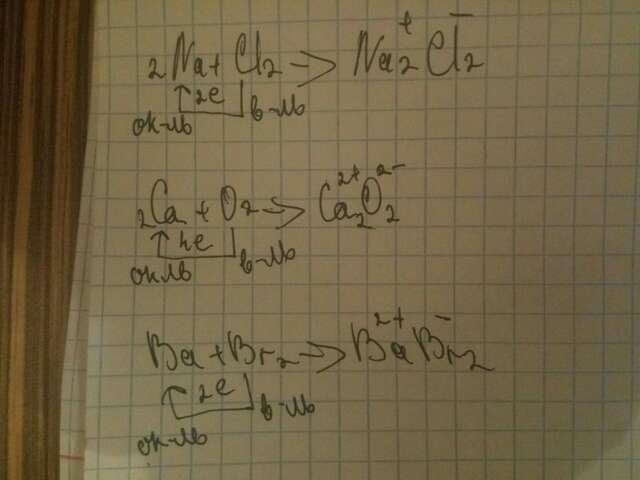 2Na + Cl2 → Na2⁺Cl2⁻
2e
ок-ль в-ль
2Ca + O2 → Ca2²⁺O2²⁻
4e
ок-ль в-ль
Ba + Br2 → Ba²⁺Br2⁻
2e
ок-ль в-ль